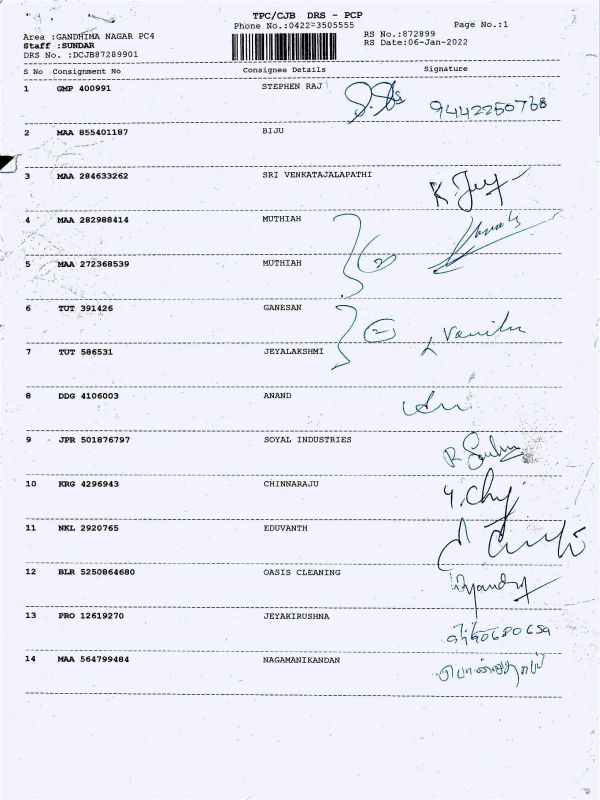 TPC/CJB DRS - PCP
Phone No.:0422-3505555
Page No.:1
Area :GANDHIMA NAGAR PC4
Staff :SUNDAR
DRS No. :DCJB87289901
RS No.:872899
RS Date:06-Jan-2022
S No Consignment No Consignee Details Signature
1 GMP 400991 STEPHEN RAJ 9442250768
2 MAA 855401187 BIJU
3 MAA 284633262 SRI VENKATAJALAPATHI
4 MAA 282988414 MUTHIAH
5 MAA 272368539 MUTHIAH
6 TUT 391426 GANESAN
7 TUT 586531 JEYALAKSHMI
8 DDG 4106003 ANAND
9 JPR 501876797 SOYAL INDUSTRIES
10 KRG 4296943 CHINNARAJU
11 NKL 2920765 EDUVANTH
12 BLR 5250864680 OASIS CLEANING
13 PRO 12619270 JEYAKIRUSHNA
14 MAA 564799484 NAGAMANIKANDAN